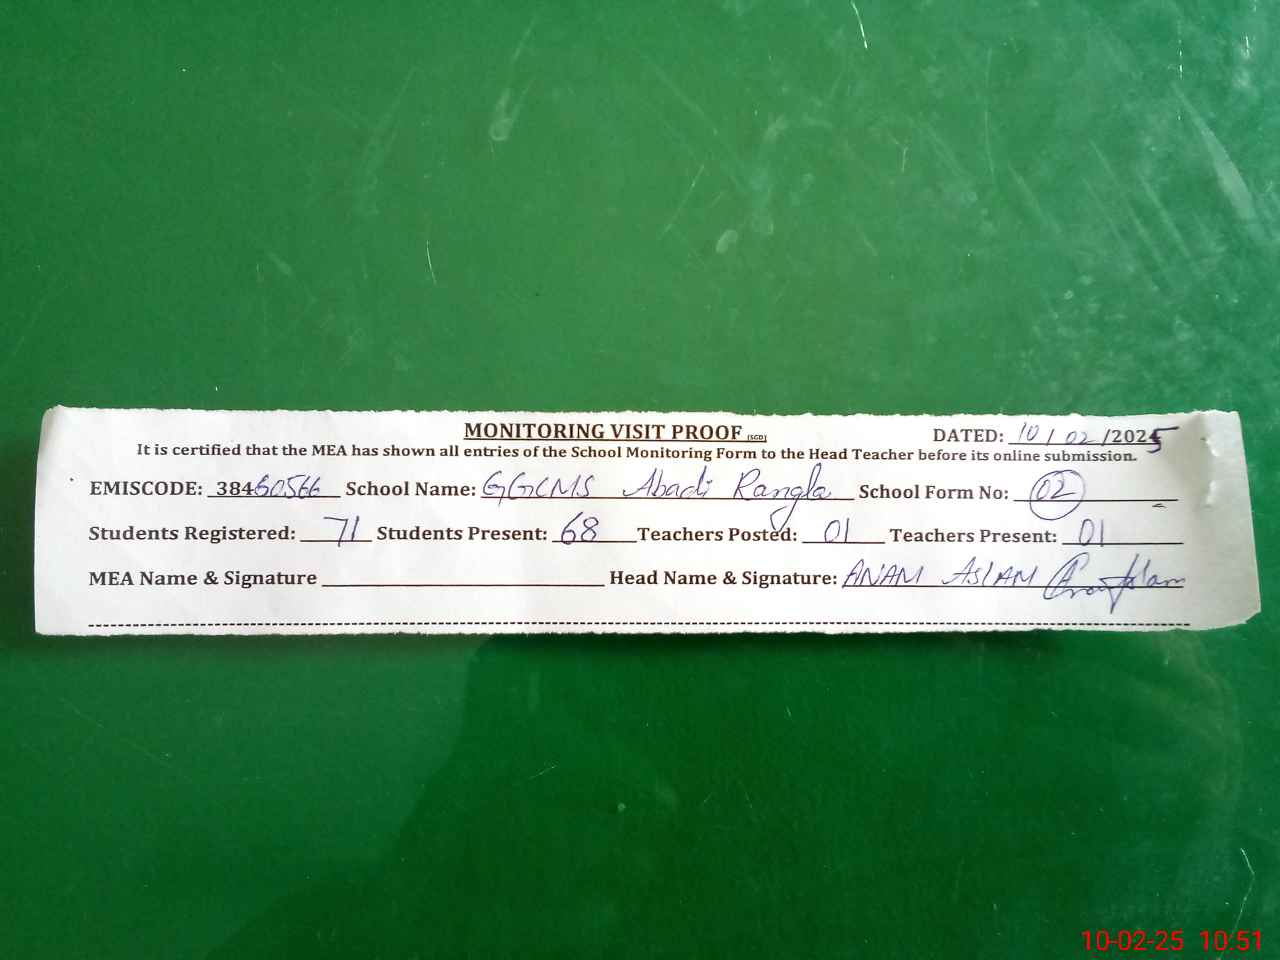 MONITORING VISIT PROOF (SGD)
DATED: 10 / 02 /2025
It is certified that the MEA has shown all entries of the School Monitoring Form to the Head Teacher before its online submission.
EMISCODE: 38460566 School Name: GGCMS Abadi Rangla School Form No: 02
Students Registered: 71 Students Present: 68 Teachers Posted: 01 Teachers Present: 01
MEA Name & Signature Head Name & Signature: ANAM ASLAM
10-02-25 10:51